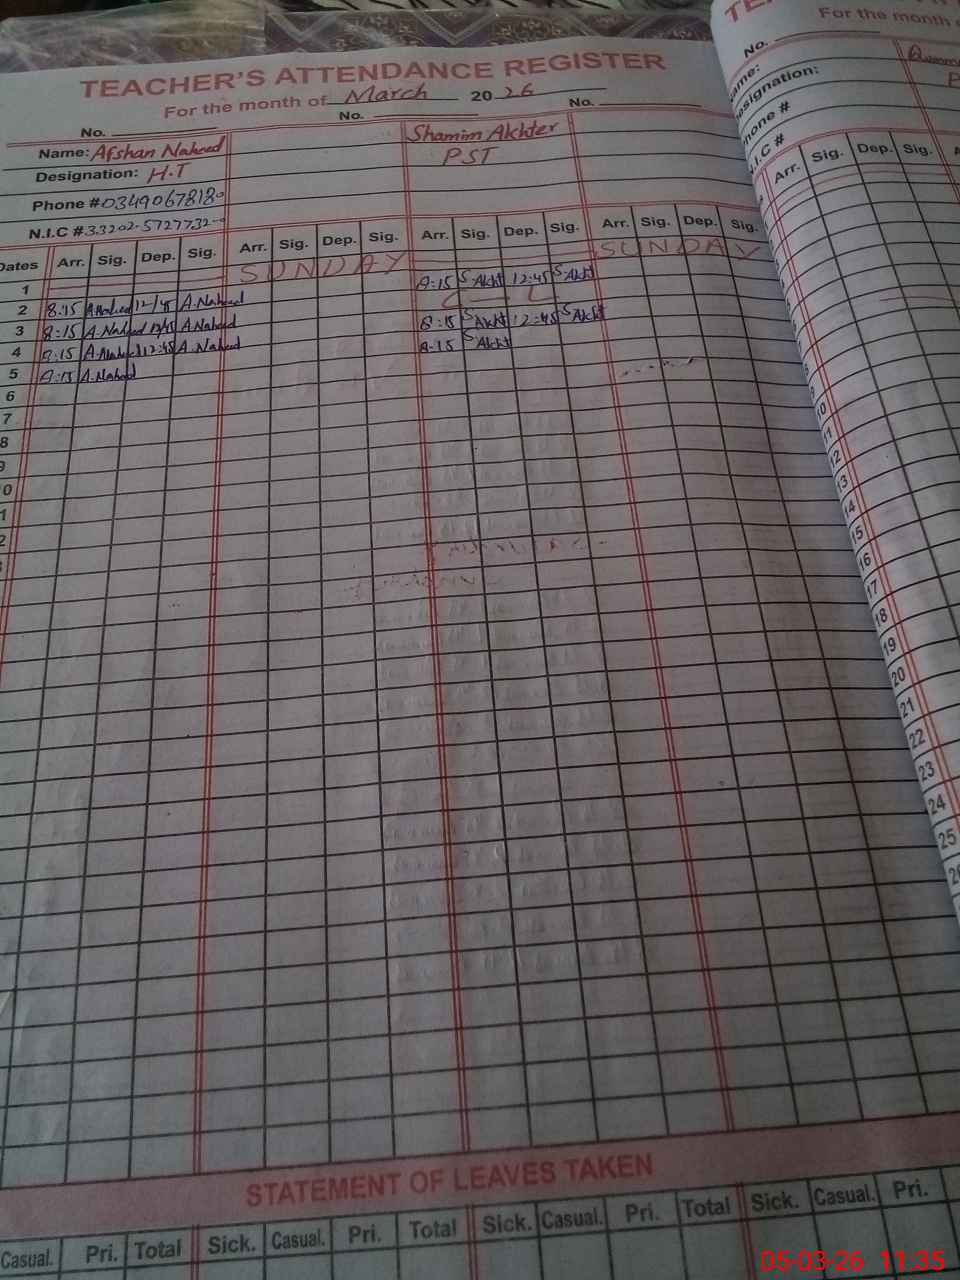 TEACHER'S ATTENDANCE REGISTER
For the month of March 2026
No. No. No.
Name: Afshan Naheed Shamim Akhter
Designation: H.T PST
Phone # 03490678180
N.I.C # 33202-5727732-0
Dates Arr. Sig. Dep. Sig. Arr. Sig. Dep. Sig. Arr. Sig. Dep. Sig. Arr. Sig. Dep. Sig.
1 SUNDAY SUNDAY
2 8:15 A.Naheed 12/45 A.Naheed 8:15 S Akht 12:45 S Akht
3 8:15 A.Naheed 12/45 A.Naheed C L
4 8:15 A.Naheed 12:45 A.Naheed 8:15 S Akht 12:45 S Akht
5 8:15 A.Naheed 8:15 S Akht
6
7
8
9
0
1
2
STATEMENT OF LEAVES TAKEN
Casual. Pri. Total Sick. Casual. Pri. Total Sick. Casual. Pri. Total Sick. Casual. Pri.
TE
For the month
No.
ame:
esignation:
hone #
N.I.C #
Arr. Sig. Dep. Sig.
8
9
10
11
12
13
14
15
16
17
18
19
20
21
22
23
24
25
05-03-26 11:35